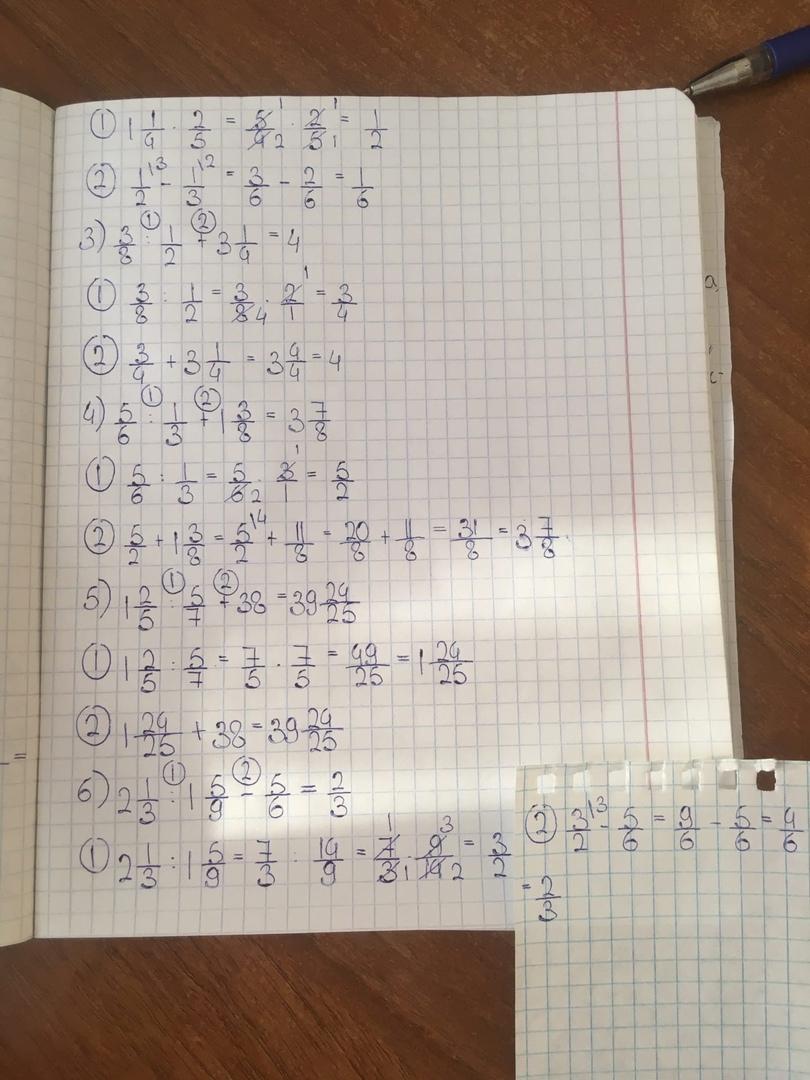 ① 1 1/4 · 2/5 = 5/4 2 1 · 2/5 1 1 = 1/2
② 1/2 |3 - 1/3 |2 = 3/6 - 2/6 = 1/6
3) 3/8 :① 1/2 +② 3 1/4 = 4
① 3/8 : 1/2 = 3/8 4 · 2/1 1 = 3/4
② 3/4 + 3 1/4 = 3 4/4 = 4
4) 5/6 :① 1/3 +② 1 3/8 = 3 7/8
① 5/6 : 1/3 = 5/6 2 · 3/1 1 = 5/2
② 5/2 + 1 3/8 = 5/2 |4 + 11/8 = 20/8 + 11/8 = 31/8 = 3 7/8.
5) 1 2/5 :① 5/7 +② 38 = 39 24/25
① 1 2/5 : 5/7 = 7/5 · 7/5 = 49/25 = 1 24/25
② 1 24/25 + 38 = 39 24/25
6) 2 1/3 :① 1 5/9 -② 5/6 = 2/3
① 2 1/3 : 1 5/9 = 7/3 : 14/9 = 7/3 1 1 · 9/14 3 2 = 3/2
② 3/2 |3 - 5/6 = 9/6 - 5/6 = 4/6
= 2/3